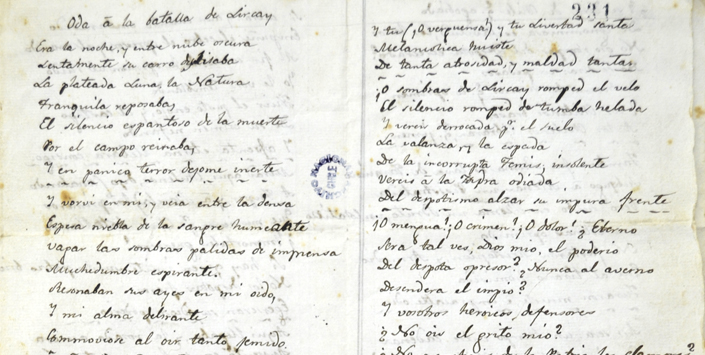 Oda à la batalla de Lircay
Era la noche, y entre nube oscura
Lentamente su carro deslisaba
La plateada Luna, la Natura
Tranquila reposaba,
El silencio espantoso de la muerte
Por el campo reinaba,
Y en panico terror dejome inerte
Y vorví en mí, y veía entre la densa
Espesa niebla de la sangre humeante
vagar las sombras palidas de imprensa
Muchedumbre espirante.
Resonaban sus ayes en mi oido,
Y mi alma delirante
Commoviose al oir tanto jemido.
231
Y tu (¡O verguensa!) y tu Livertad santa
Melancolica huiste
De tanta atrosidad, y maldad tanta
¡O sombras de Lircay romped el velo
El silencio romped de tumba helada
Y vereis derrocada pr. el suelo
La valanza, y la espada
De la incorrupta Temis, insolente
Vereis à la odiada
Del despotismo alzar su impura frente
¡O mengua! ¡O crimen! ¡O dolor! ¿Eterno
Sera tal ves, Dios mio, el poderio
Del despota opresor? ¿Nunca al averno
Desendera el impio?
Y vosotros heroicos, defensores
¿No ois el grito mio?
¿No de la